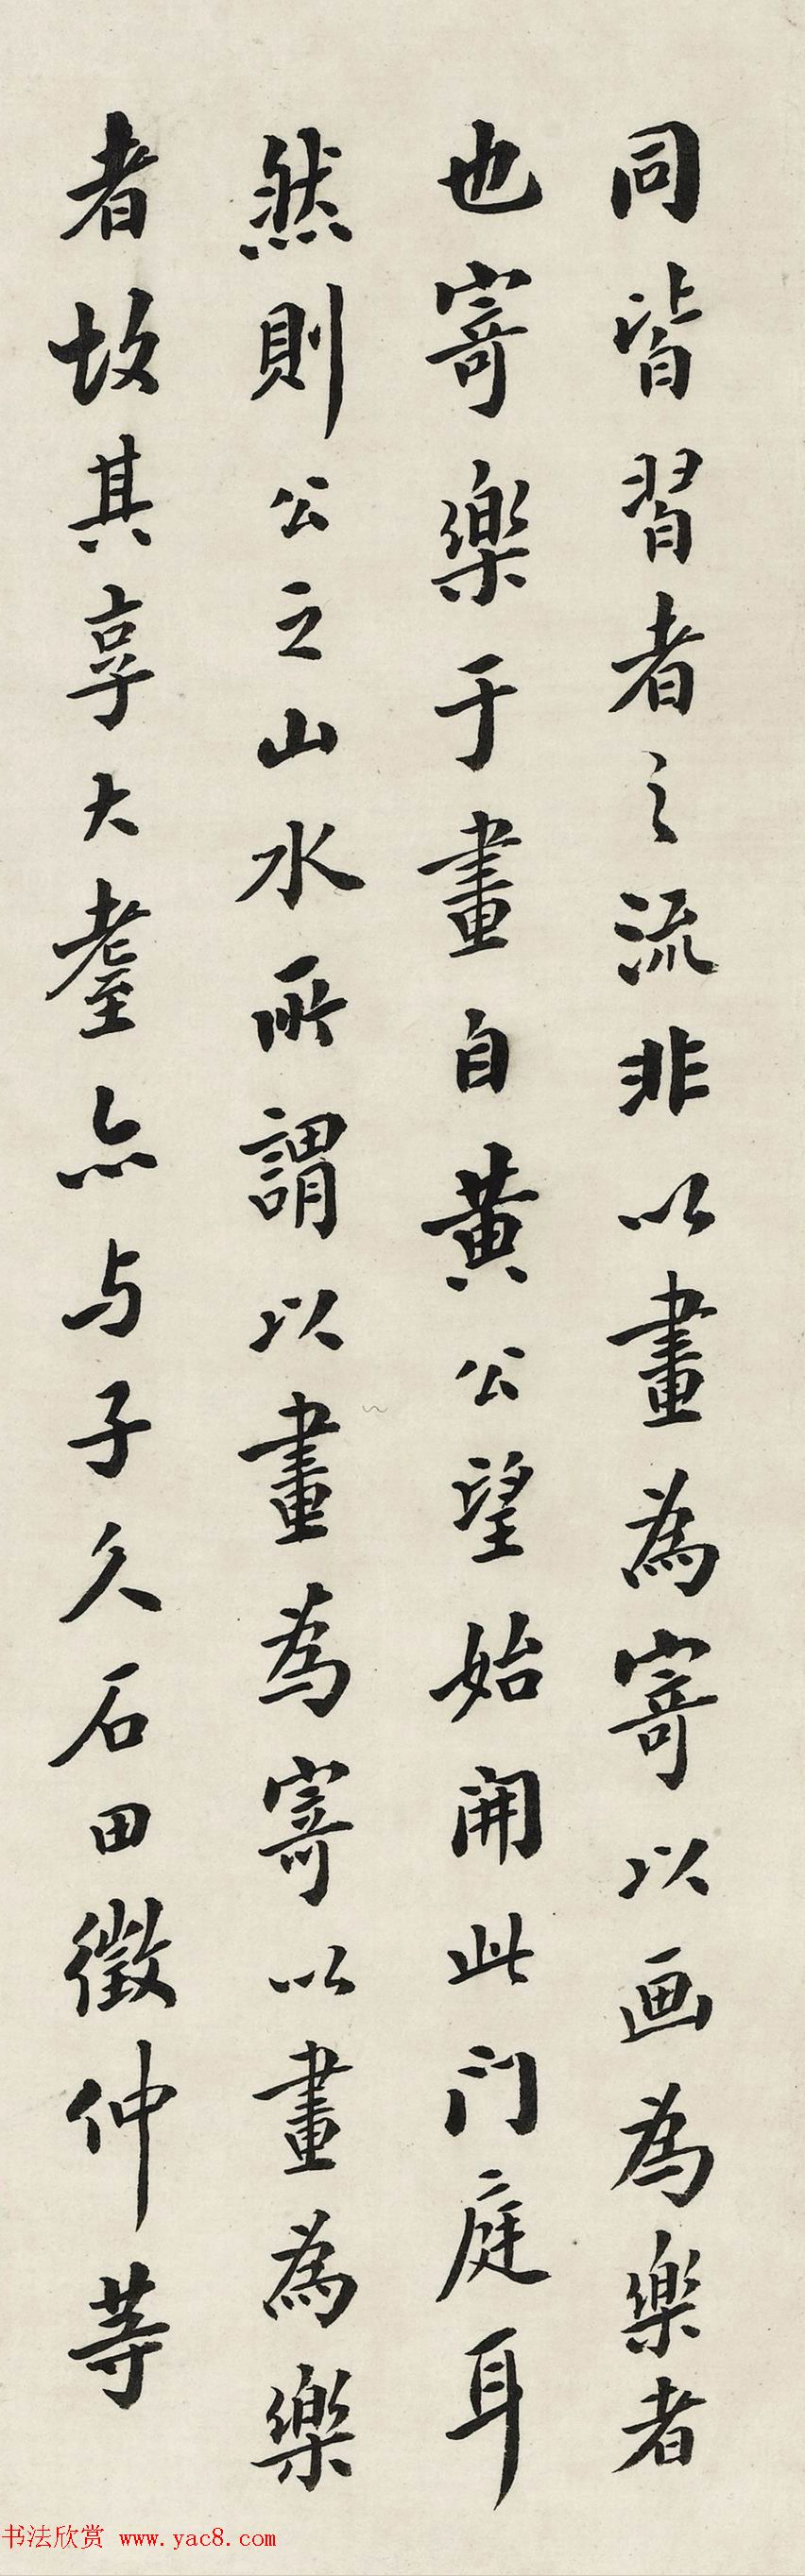 同皆習者之流非以畫為寄以画為樂者
也寄樂于畫自黃公望始開此门庭耳
然則公之山水所謂以畫為寄以畫為樂
者故其享大耋亦与子久石田徵仲等
书法欣赏 www.yac8.com